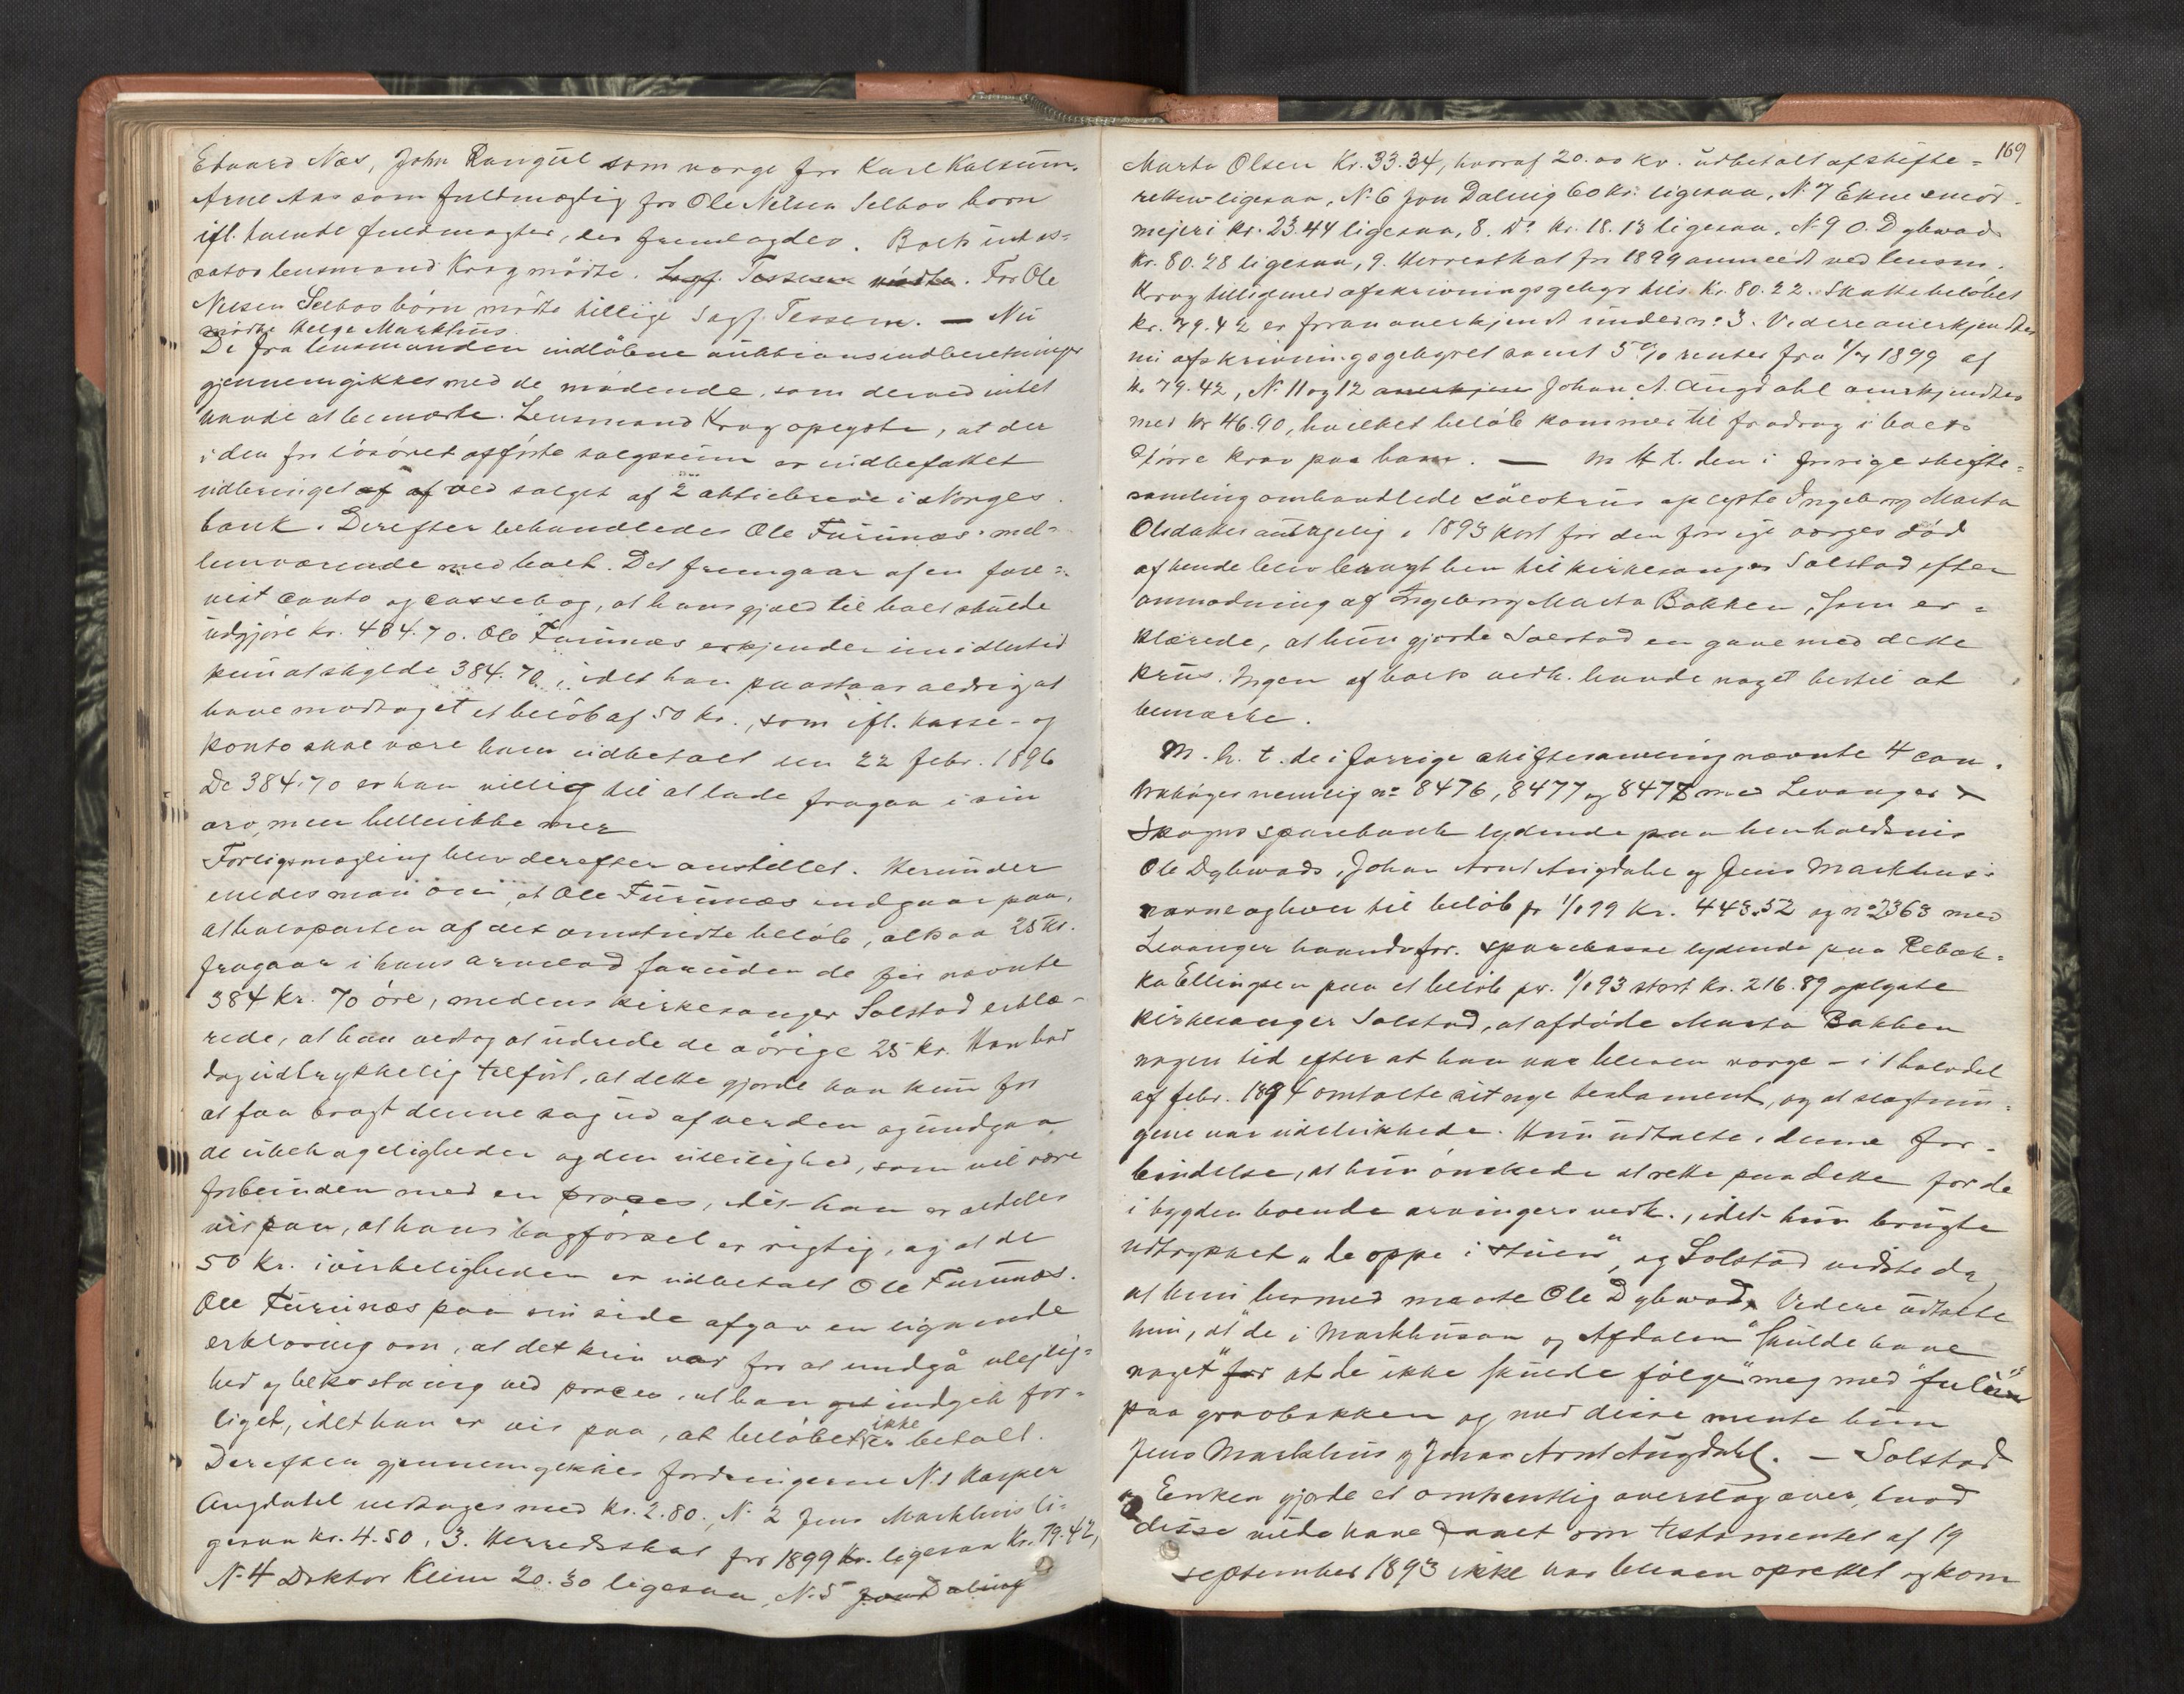 Edvard Næs, John Rangul som værge for Karl Kalsum.
Arne Aas som fuldmægtig for Ole Nelsen Selbos børn
ifl. tvende fuldmagter, der fremlagdes. Boets incas-
sator lensmand Krag mødte. Sagf. Tessem mødte. For Ole
Nelsen Selbos børn mødte tillige Sagf. Tessem. — Nu
mødte Helge Markhus.
De fra lensmanden indløbne auktionsindberetninger
gjennemgikkes med de mødende, som derved intet
havde at bemærke. Lensmand Krag oplyste, at der
i den for løsøret opførte salgssum er indbefattet
udbringet af ved salget af 2 aktiebreve i Norges
bank. Derefter behandledes Ole Furunæs' mel-
lemværende med boet. Det fremgaar af en fore-
vist conto og cassebog, at hans gjæld til boet skulde
udgjøre kr. 434.70. Ole Furunæs erkjender imidlertid
kun at skylde 384.70, idet han paastaar aldrig at
have modtaget et beløb af 50 kr., som ifl. kasse- og
konto skal være ham udbetalt den 22 febr. 1896
De 384.70 er han villig til at lade fragaa i sin
arv, men heller ikke mer
Forligsmægling blev derefter anstillet. Herunder
enedes man om, at Ole Furunæs indgaar paa,
at halvparten af det omstridte beløb, altsaa 25 kr.
fragaar i hans arvelod foruden de før nævnte
384 kr. 70 øre, medens kirkesanger Solstad erklæ-
rede, at han vedtog at udrede de øvrige 25 kr. Han bad
dog udtrykkelig tilført, at dette gjorde han kun for
at faa bragt denne sag ud af verden og undgaa
de ubehageligheder og den uleilighed, som vil være
forbunden med en proces, idet han er aldeles
vis paa, at hans bogførsel er rigtig, og at de
50 kr. i virkeligheden er udbetalt Ole Furunæs.
Ole Furunæs paa sin side afgav en lignende
erklæring om, at det kun var for at undgå uleilig-
hed og bekostning ved proces, at han indgik for-
liget, idet han er vis paa, at beløbet ikke er betalt.
Derefter gjennemgikkes fordringerne N. 1 Kasper
Augdahl vedtages med kr. 2.80., N. 2 Jens Markhus li-
gesaa kr. 4.50, 3. Herredsskat for 1899 kr. ligesaa kr. 79.42,
N. 4 Doktor Klem 20.30 ligesaa, N. 5 Jon Daling
169
Marta Olsen kr. 33.34, hvoraf 20.00 kr. udbetalt af skifte-
retten ligesaa, N. 6 Jon Daling 60 kr. ligesaa, N. 7 Ekne smør-
mejeri kr. 23.44 ligesaa, 8. Do kr. 18.13 ligesaa, N. 9 O. Dybvad
kr. 80.28 ligesaa, 9. Herredskat for 1899 anmeldt ved lensm.
Krag tilligemed afskrivningsgebyr tils. kr. 80.22. Skattebeløbet
kr. 79.42 er foran anerkjendt under no 3. Videre anerkjendtes
nu afskrivningsgebyret samt 5 % renter fra 1/7 1899 af
kr. 79.42, N. 11 og 12 Johan A. Augdahl anerkjendtes
med kr 46.90, hvilket beløb kommer til fradrag i boets
større krav paa ham. — M H t. den i forrige skifte-
samling omhandlede sølvkrus oplyste Ingeborg Marta
Olsdatter antagelig i 1893 kort før den forrige værges død
af hende blev bragt hen til kirkesanger Solstad efter
anmodning af Ingeborg Marta Bakken, som er-
klærede, at hun gjorde Solstad en gave med dette
krus. Ingen af boets vedk. havde noget hertil at
bemærke.
M. h. t. de i forrige skiftesamling nævnte 4 con-
trabøger nemlig no 8476, 8477 og 8478 med Levanger &
Skogns sparebank lydende paa henholdsvis
Ole Dybvads, Johan Arnt Augdahl og Jens Markhus's
navne og hver til beløb pr 1/1 99 kr. 443.52 og no 2363 med
Levanger haandv.for. sparekasse lydende paa Rebek-
ka Ellingsen paa et beløb pr. 1/1 93 stort kr. 216.89 oplyste
kirkesanger Solstad, at afdøde Marta Bakken
nogen tid efter at han var bleven værge – i 1 halvdel
af febr. 1894 omtalte sit nye testament, og at slagtnin-
gene var udelukkede. Hun udtalte i denne for-
bindelse, at hun ønskede at rette paa dette for de
i bygden boende arvingers vedk., idet hun brugte
udtrykket „de oppe i stuen", og Solstad vidste da,
at hun hermed mente Ole Dybvad. Videre udtalte
hun, at "de i Markhusan og Afdalen" skulde have
noget "for at de ikke skulde følge" meg med "fulun"
paa gravbakken og med disse mente hun
Jens Markhus og Johan Arnt Augdahl. — Solstad
og Enken gjorde et omtrentlig overslag over, hvad
disse vilde have faaet om testamentet af 19
september 1893 ikke var bleven oprettet og kom